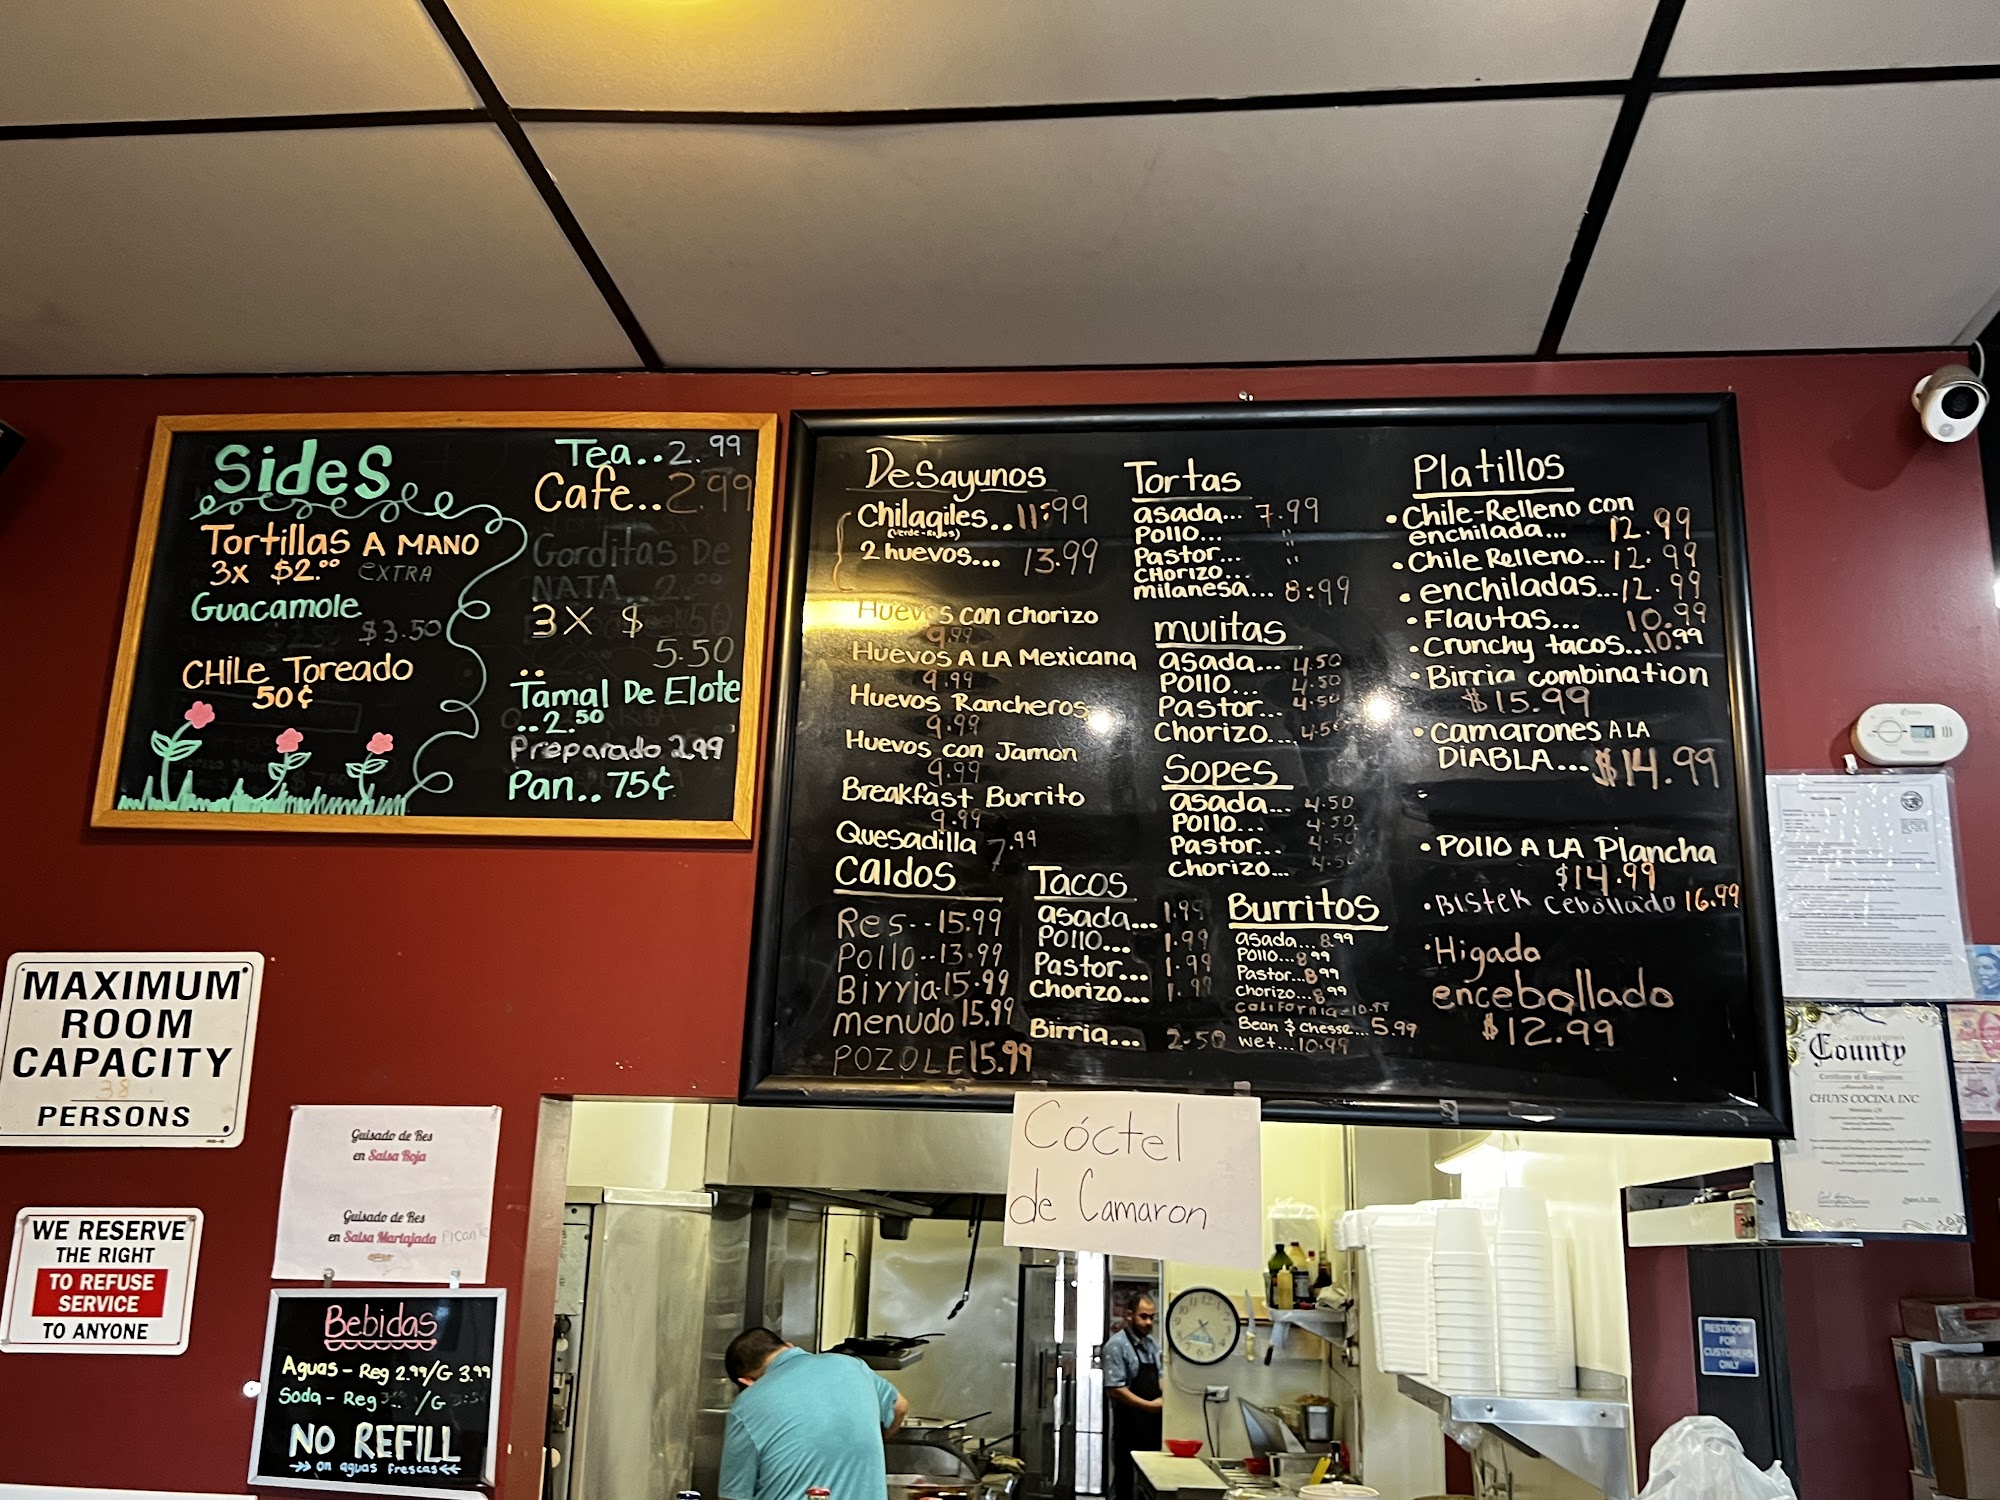 Sides
Tortillas A MANO
3x $2.00 EXTRA
Guacamole
$3.50
CHILE Toreado
50¢
Tea..2.99
Cafe..2.99
Gorditas De
NATA..2.00
3X $
5.50
Tamal De Elote
..2.50
Preparado 2.99
Pan.. 75¢
DeSayunos
Chilaqiles..11:99
(Verde-Rojos)
2 huevos... 13.99
Huevos con chorizo
9.99
Huevos A LA Mexicana
9.99
Huevos Rancheros
9.99
Huevos con Jamon
9.99
Breakfast Burrito
9.99
Quesadilla 7.99
Caldos
Res--15.99
Pollo--13.99
Birria-15.99
menudo 15.99
POZOLE 15.99
Tortas
asada... 7.99
Pollo... "
Pastor... "
CHorizo...
milanesa... 8:99
mulitas
asada... 4.50
Pollo... 4.50
Pastor... 4.50
Chorizo... 4.50
Sopes
asada... 4.50
Pollo... 4.50
Pastor... 4.50
Chorizo... 4.50
Tacos
asada... 1.99
Pollo... 1.99
Pastor... 1.99
Chorizo... 1.99
Birria... 2.50
Burritos
asada...8.99
Pollo...8.99
Pastor...8.99
Chorizo...8.99
California-10.99
Bean & Chesse...5.99
wet...10.99
Platillos
• Chile-Relleno con
enchilada... 12.99
• Chile Relleno...12.99
• enchiladas...12.99
• Flautas... 10.99
• Crunchy tacos...10.99
• Birria combination
$15.99
• Camarones A LA
DIABLA...$14.99
• Pollo A LA Plancha
$14.99
• Bistek cebollado 16.99
• Higado
encebollado
$12.99
MAXIMUM
ROOM
CAPACITY
38
PERSONS
WE RESERVE
THE RIGHT
TO REFUSE
SERVICE
TO ANYONE
Guisado de Res
en Salsa Roja
Guisado de Res
en Salsa Martajada Picante
Bebidas
Aguas - Reg 2.99/G 3.99
Soda - Reg /G
NO REFILL
on aguas frescas
Cóctel
de Camaron
County
Certificate of Recognition
CHUYS COCINA INC
RESTROOM
FOR
CUSTOMERS
ONLY